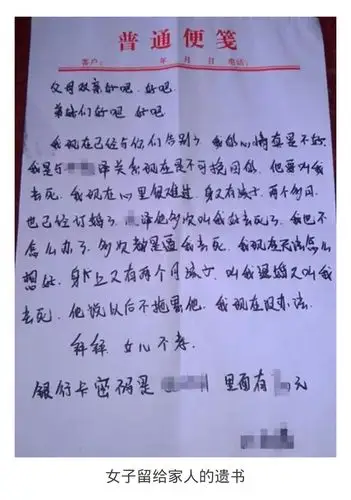 普通便笺
客户: 年 月 日 电话:
父母双亲好吧. 好吧
弟妹们好吧 好吧.
我现在已经与你们告别了 我的心情真是不好
我是与 泽关系现在是不可挽回的, 他要叫我
去死, 我现在心里很难过, 身又有孩子, 两个多月,
也已经订婚了, 泽他多次叫我去死了, 我也不
怎么办了 多次都是逼我去死, 我现在无法怎么
想好, 身上又有两个月孩子, 叫我退婚又叫我
去死, 他说以后不拖累他, 我现在没办法,
拜拜 女儿不孝.
银行卡密码是 里面有 元
女子留给家人的遗书